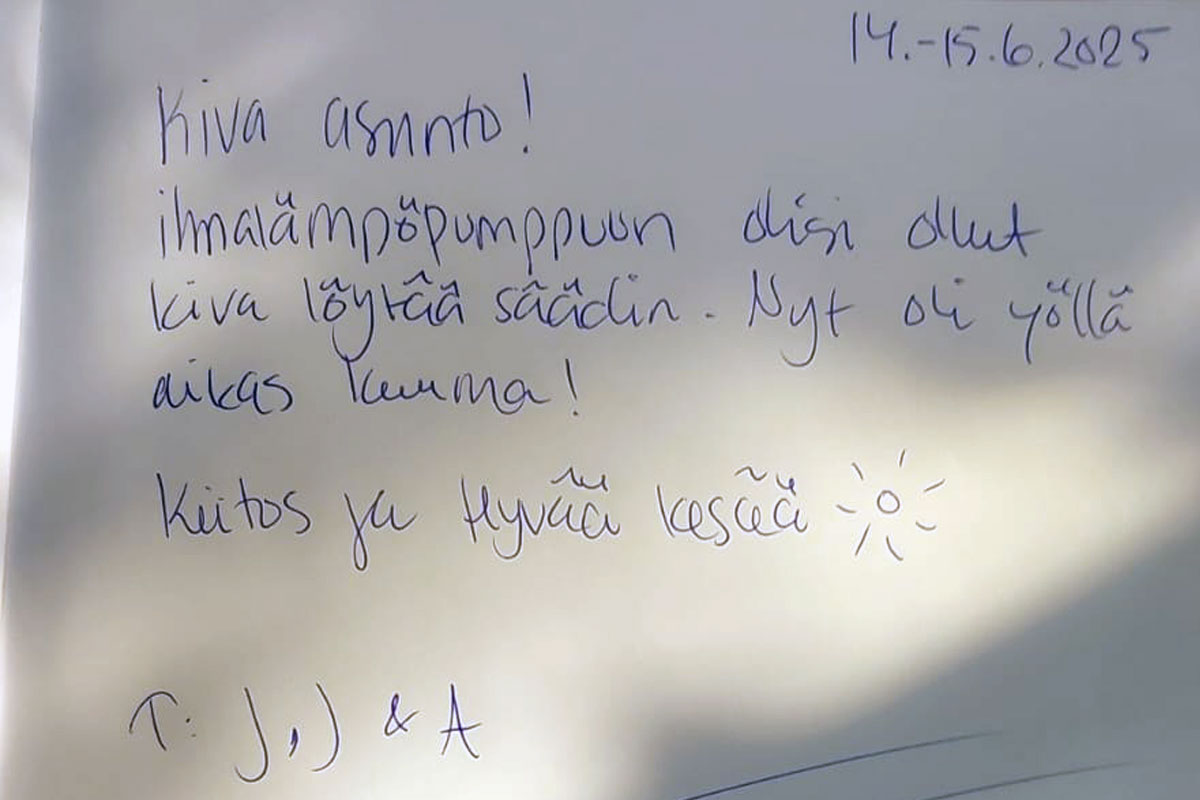 14.-15.6.2025
Kiva asunto!
ilmalämpöpumppuun olisi ollut
kiva löytää säädin. Nyt oli yöllä
aikas kuuma!
Kiitos ja Hyvää kesää
T: J, J & A